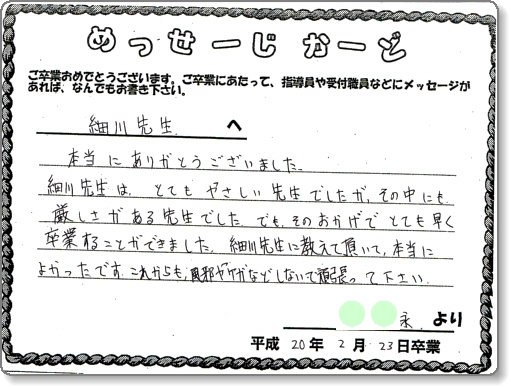 めっせーじ かーど
ご卒業おめでとうございます。ご卒業にあたって、指導員や受付職員などにメッセージが
あれば、なんでもお書き下さい。
細川先生 へ
本当にありがとうございました。
細川先生は、とてもやさしい先生でしたが、その中にも、
厳しさがある先生でした。でも、そのおかげでとても早く
卒業することができました。細川先生に教えて頂いて、本当に
よかったです。これからも、風邪やケガなどしないで頑張って下さい。
永 より
平成 20年 2月 23日卒業